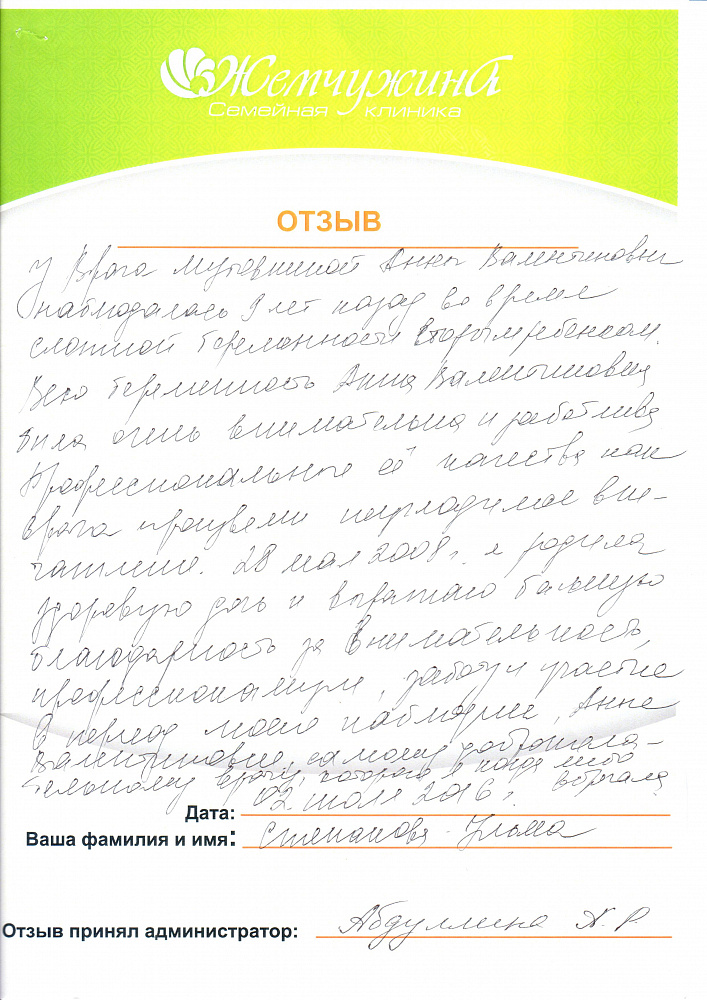 Жемчужина
Семейная клиника
ОТЗЫВ
У Врача Анны Валентиновны
наблюдалась 9 лет назад во время
сложной беременности вторым ребенком.
Всю беременность Анна Валентиновна
была очень внимательна и заботлива
Профессиональные её качества как
врача произвели неизгладимое впе-
чатление. 28 мая 2008 г. я родила
здоровую дочь и выражаю большую
благодарность за внимательность,
профессионализм, заботу и участие
в период моего наблюдения, Анне
Валентиновне, самому доброжела-
тельному врачу, которого я когда либо
встречала
Дата: 02 июля 2016 г.
Ваша фамилия и имя: Степанова Ульяна
Отзыв принял администратор: Абдуллина Х. Р.